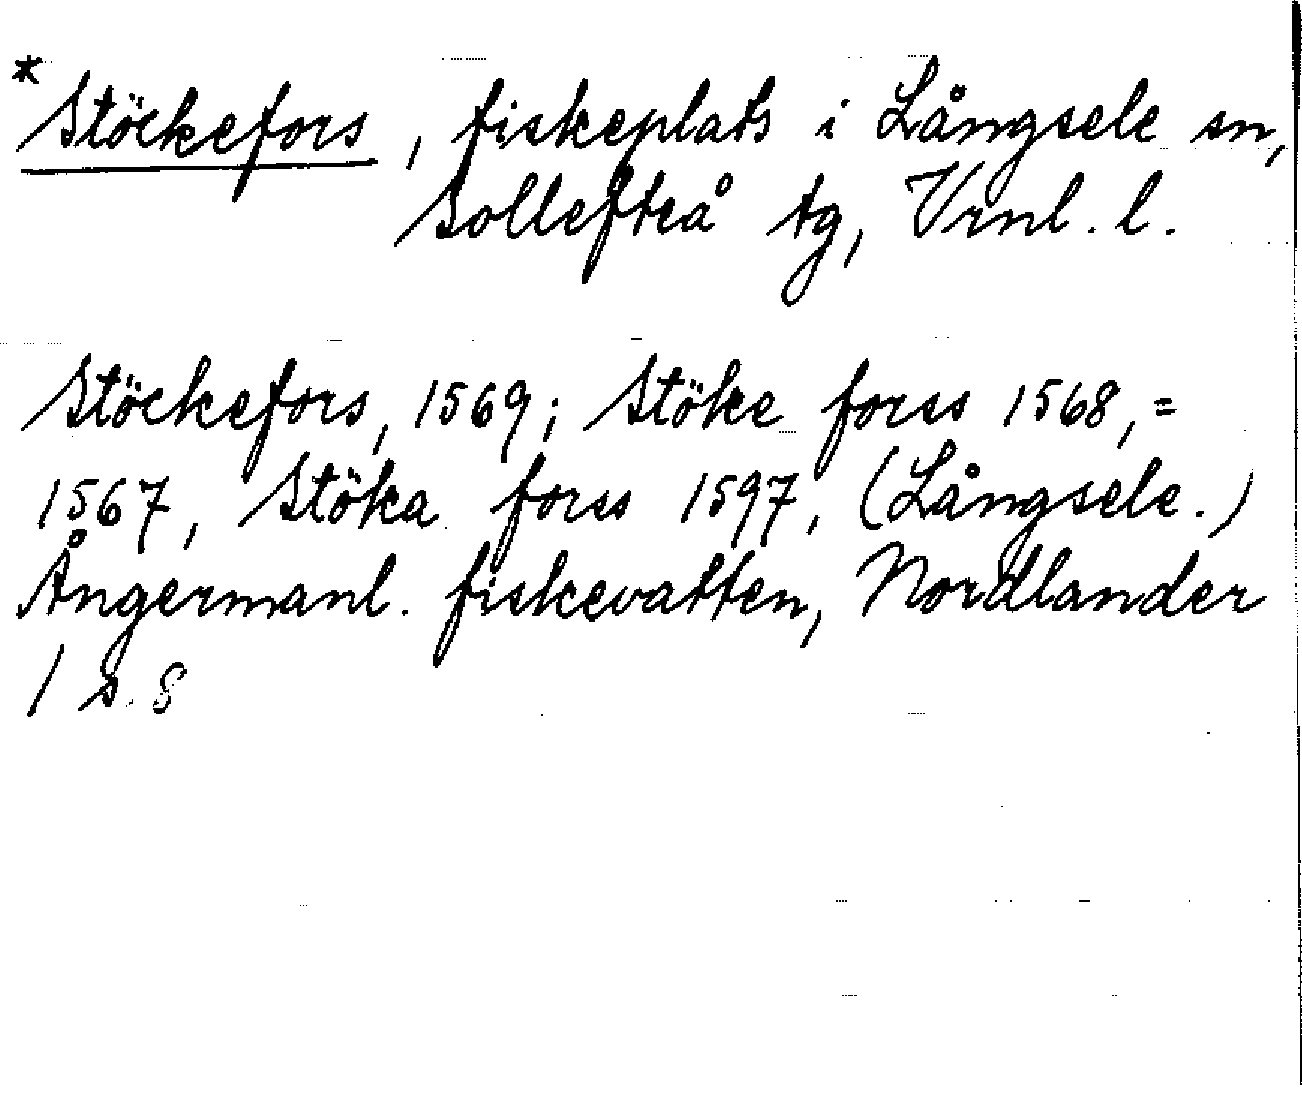 *Stöckefors, fiskeplats i Långsele sn,
Sollefteå tg, Vrnl. l.
Stöckefors, 1569; Stöke forss 1568, =
1567, Stöka forss 1597, (Långsele.)
Ångermanl. fiskevatten, Nordlander
1 s. 8